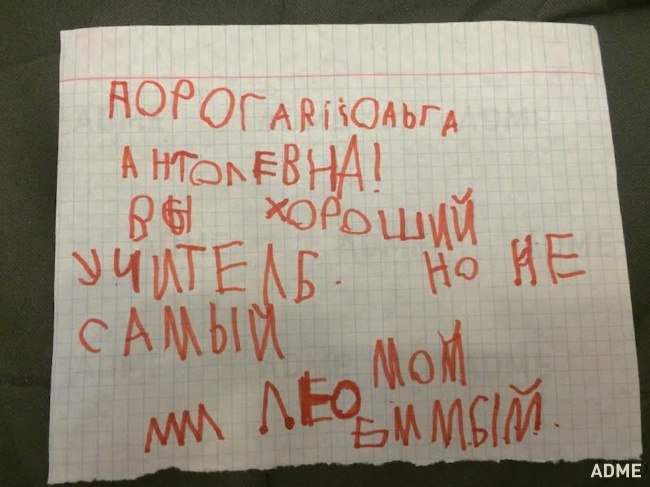 ДОРОГАЯ ОЛЬГА
АНТОЛЕВНА!
ВЫ ХОРОШИЙ
УЧИТЕЛЬ. НО НЕ
САМЫЙ
МОЙ
ЛЕОБИМЫЙ.
ADME